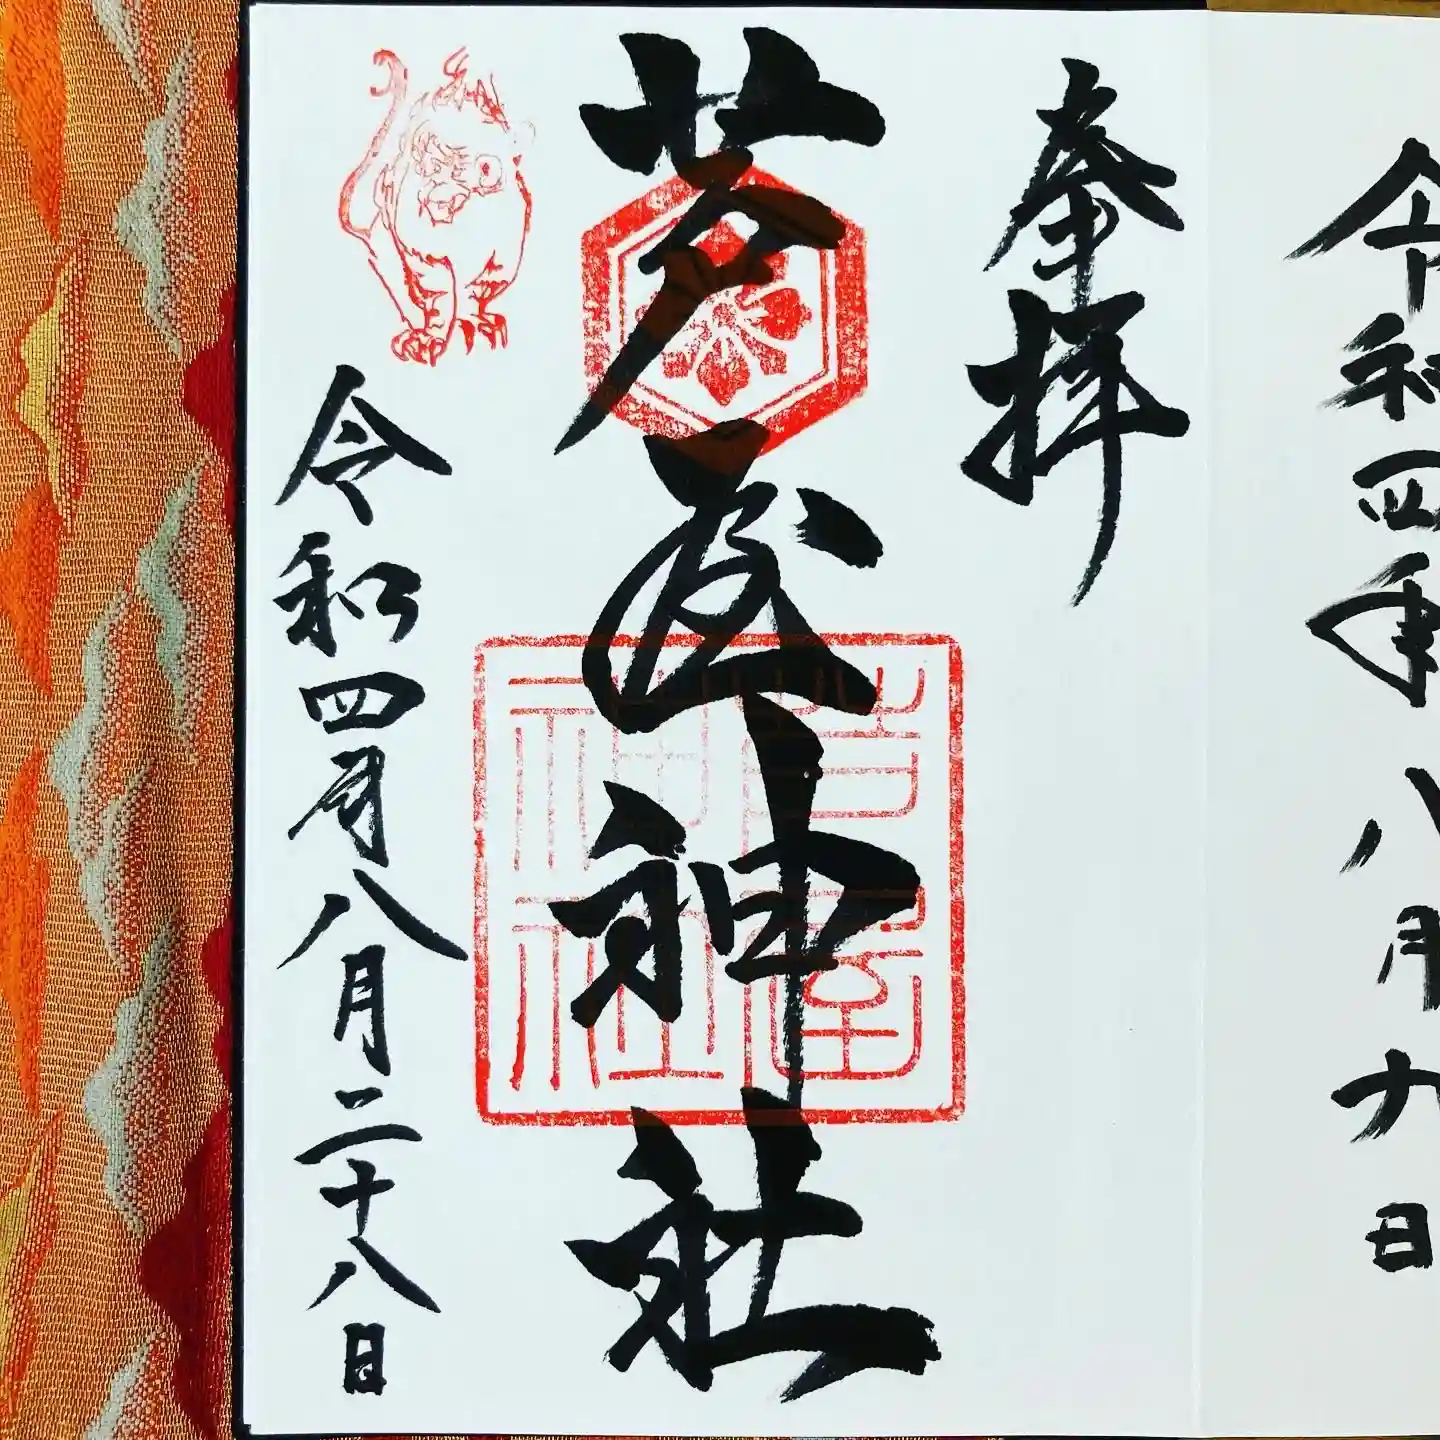 令和四年八月九日
奉拝
芦屋神社
芦屋神社
令和四年八月二十八日